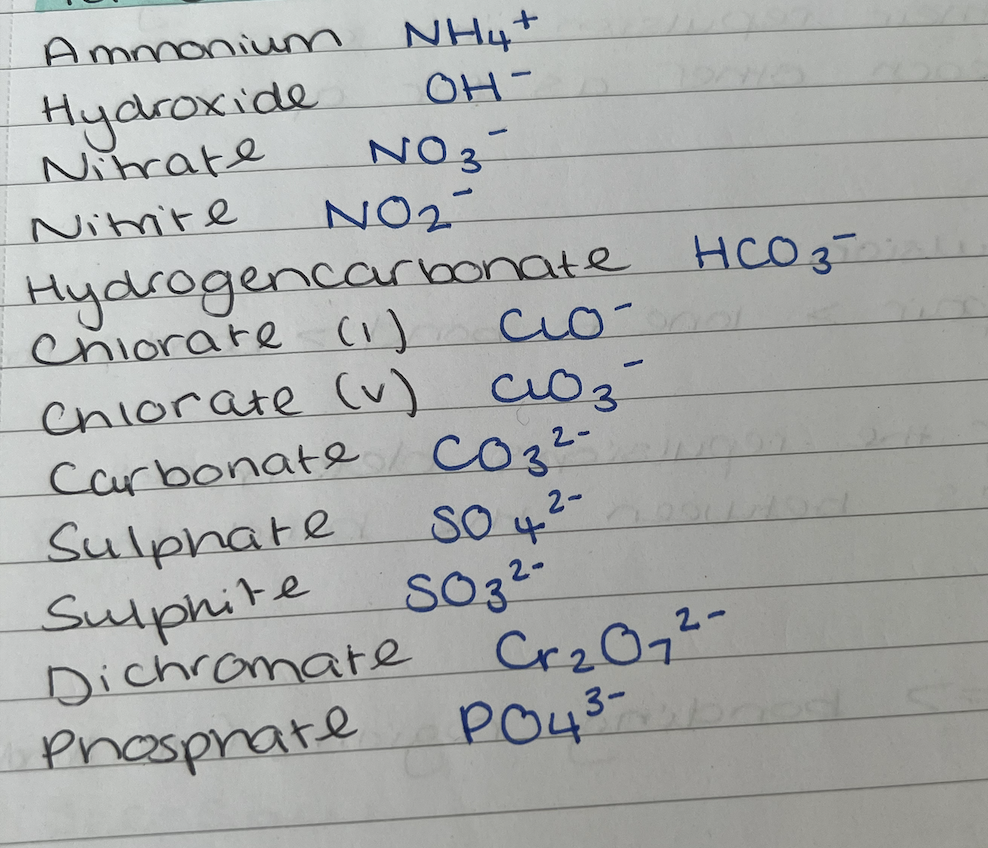 Ammonium NH₄⁺
Hydroxide OH⁻
Nitrate NO₃⁻
Nitrite NO₂⁻
Hydrogencarbonate HCO₃⁻
Chlorate (I) ClO⁻
Chlorate (V) ClO₃⁻
Carbonate CO₃²⁻
Sulphate SO₄²⁻
Sulphite SO₃²⁻
Dichromate Cr₂O₇²⁻
Phosphate PO₄³⁻